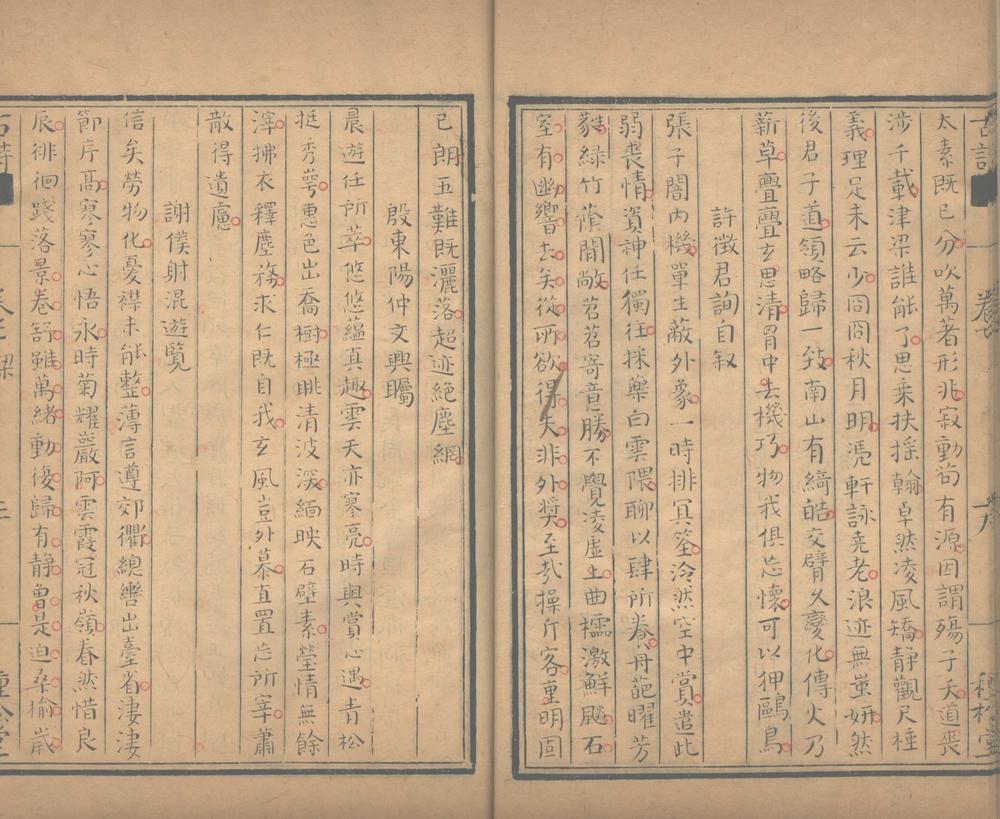 古詩
卷
十九
種松堂
太素既已分吹萬著形兆寂動苟有源因謂殤子夭道喪
涉千載津梁誰能了思乗扶揺翰卓然凌風矯静觀尺棰
義理足未云少冏冏秋月明憑軒詠堯老浪迹無蚩妍然
後君子道領略歸一致南山有綺皓交臂久變化傳火乃
薪草亹亹玄思清胷中去機巧物我俱忘懷可以狎鷗鳥
許徴君詢自叙
張子闇内機單生蔽外象一時排冥筌泠然空中賞遣此
弱喪情資神任獨往採藥白雲隈聊以肆所養丹葩曜芳
蕤綠竹蔭閒敞苕苕寄意勝不覺凌虚上曲櫺激鮮飈石
室有幽響去矣從所欲得失非外奬至哉操斤客重明固
已朗五難既灑落超迹絶塵網
殷東陽仲文興矚
晨遊任所萃悠悠藴真趣雲天亦寥亮時與賞心遇青松
挺秀萼惠色出喬樹極眺清波深緬映石壁素瑩情無餘
滓拂衣釋塵務求仁既自我玄風豈外慕直置忘所宰蕭
散得遺慮
謝僕射混遊覽
信矣勞物化憂襟未能整薄言遵郊衢總轡出臺省淒淒
節序高寥寥心悟永時菊耀巖阿雲霞冠秋嶺眷然惜良
辰徘徊踐落景卷舒雖萬緒動復歸有静曾是迫桑榆歳
古詩
種松堂